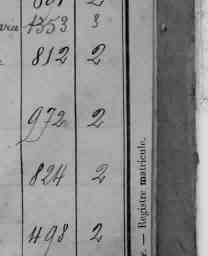 1353 3
812 2
972 2
824 2
498 2
— Registre matricule.